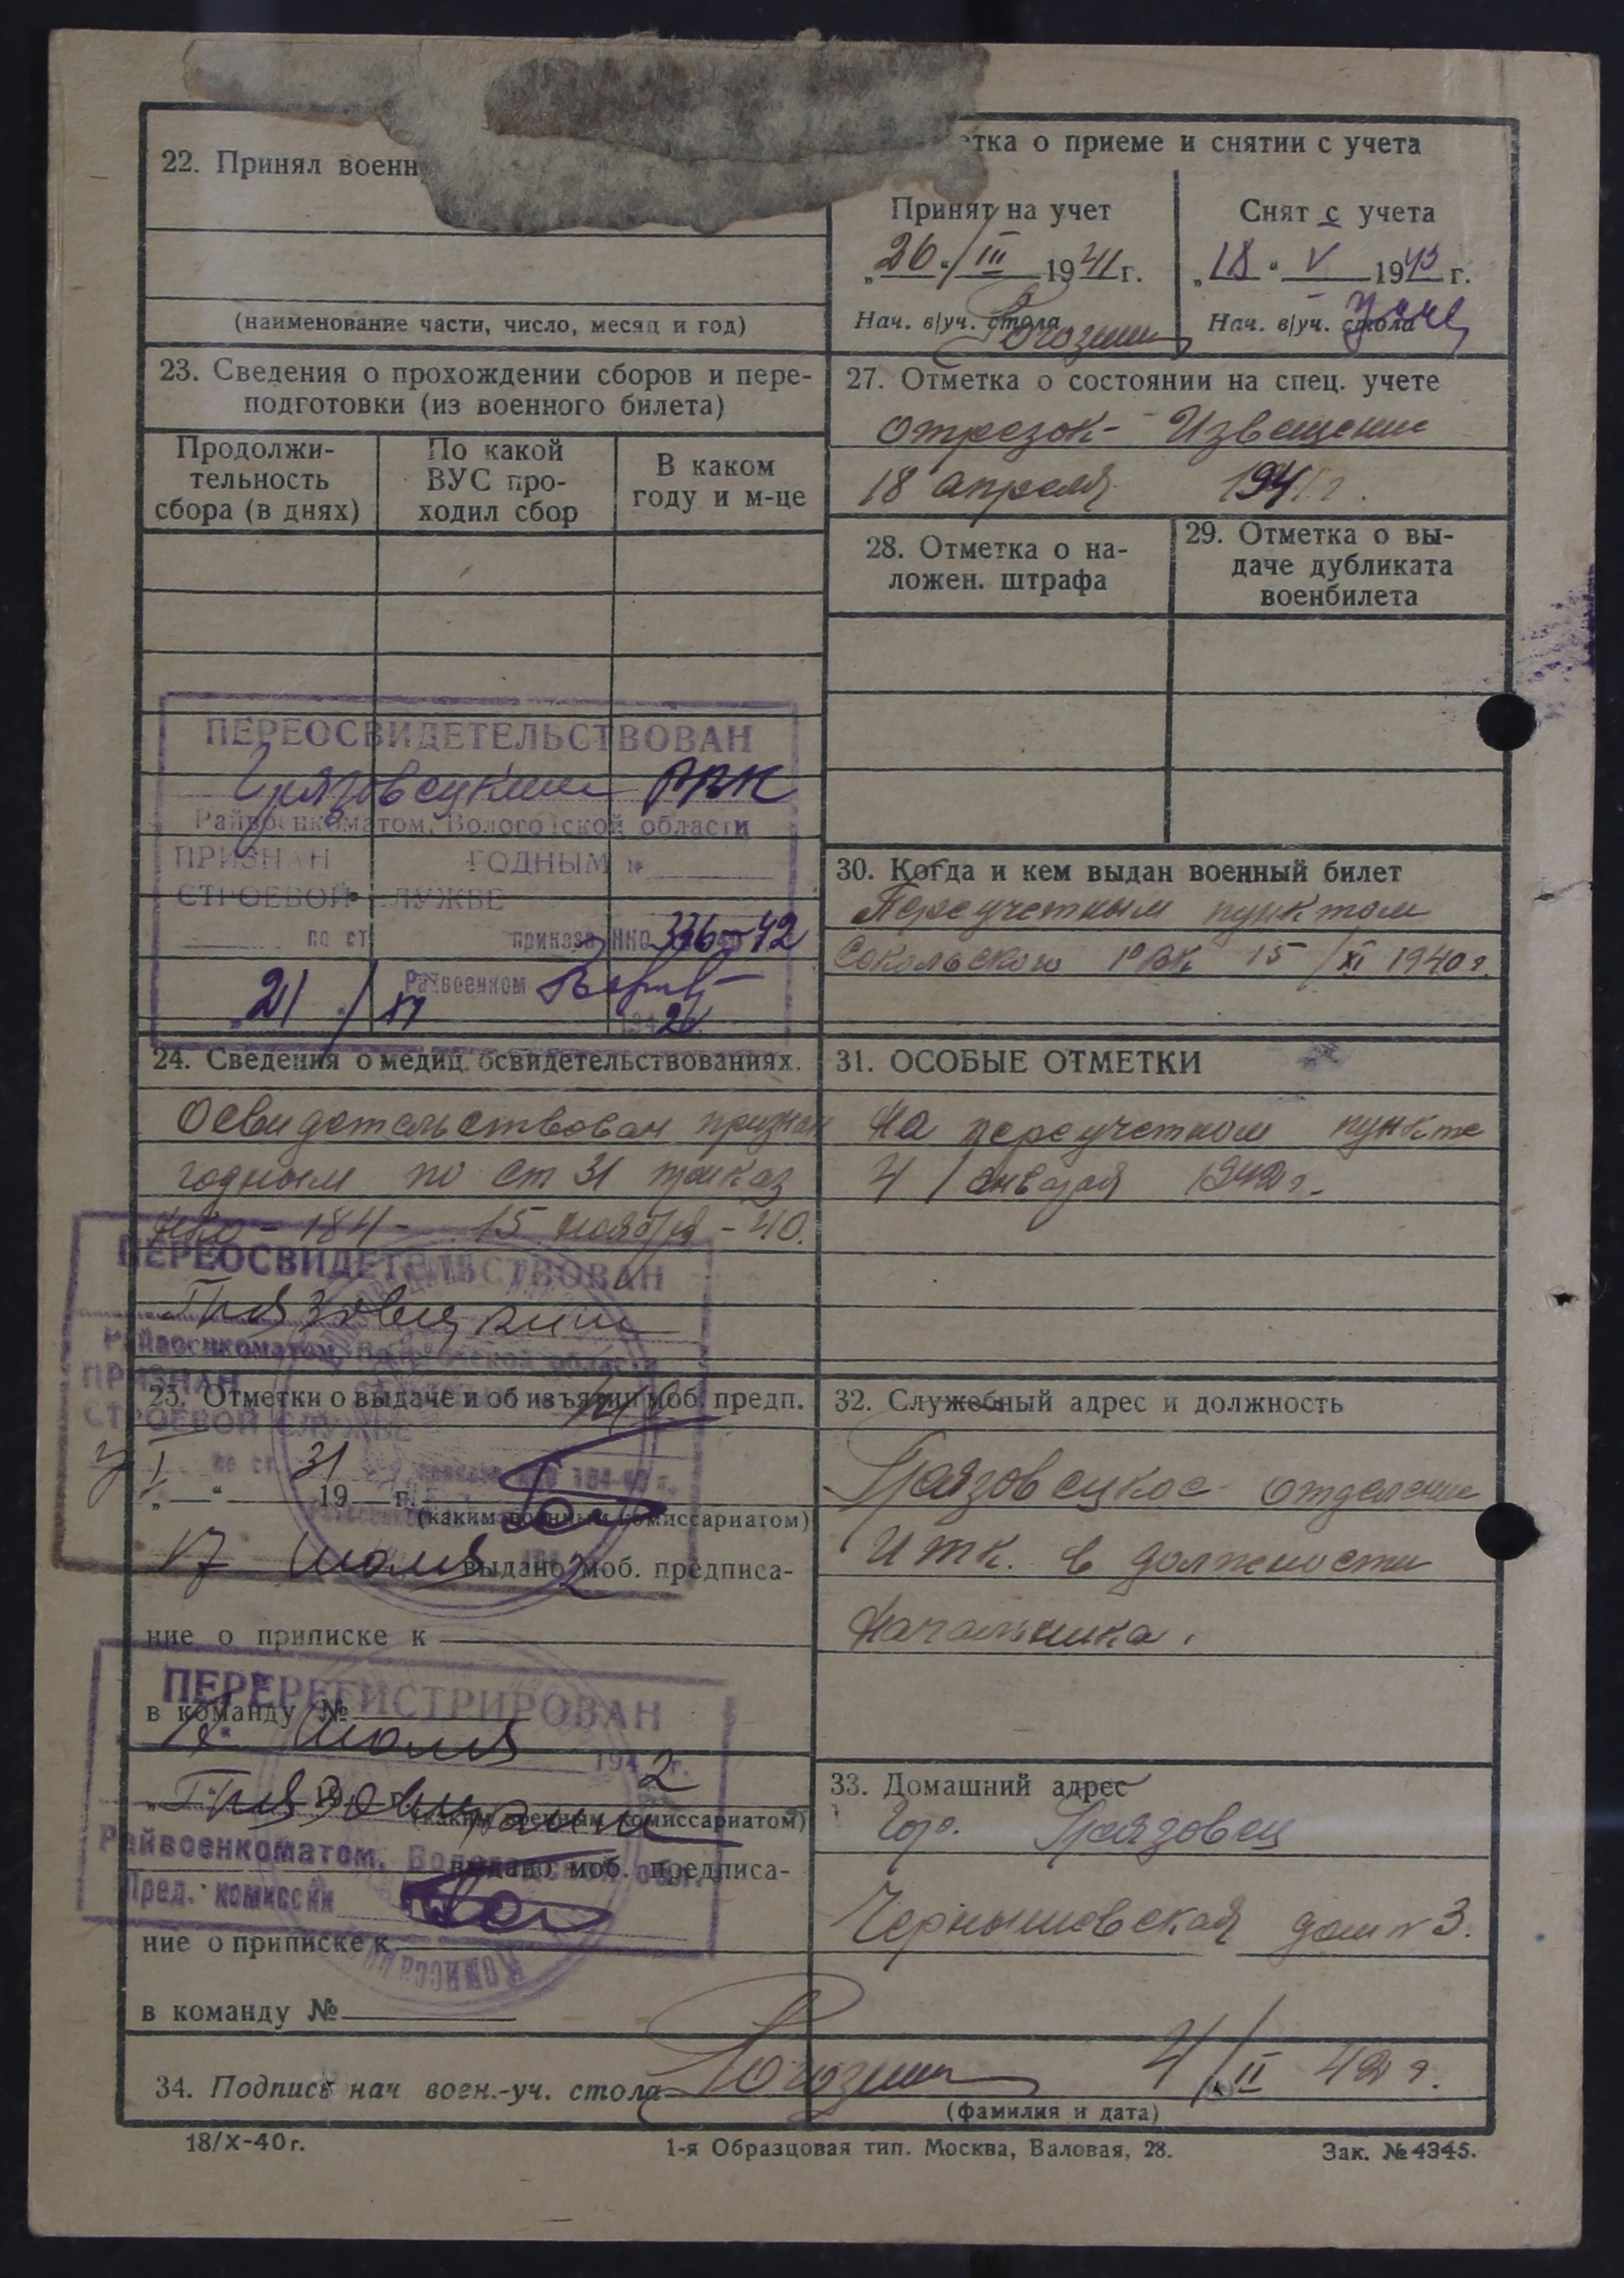 22. Принял военн
(наименование части, число, месяц и год)
23. Сведения о прохождении сборов и пере-
подготовки (из военного билета)
Продолжи-
тельность
сбора (в днях)
По какой
ВУС про-
ходил сбор
В каком
году и м-це
ПЕРЕОСВИДЕТЕЛЬСТВОВАН
Грязовецким РВК
Райвоенкоматом, Вологодской области
ПРИЗНАН ГОДНЫМ к
СТРОЕВОЙ СЛУЖБЕ
по ст приказа НКО 336-42
Райвоенком
21 / XI 1942 г.
24. Сведения о медиц. освидетельствованиях.
Освидетельствован признан
годным по ст 31 приказ
НКО - 184 - 15 ноября - 40.
ПЕРЕОСВИДЕТЕЛЬСТВОВАН
Грязовецким
Райвоенкоматом, Вологодской области
ПРИЗНАН
СТРОЕВОЙ СЛУЖБЕ
25. Отметки о выдаче и об изъятии моб. предп.
по ст. 31 приказа НКО 184-40 г.
„ “ 19 г.
(каким военным комиссариатом)
17 июля 2
выдано моб. предписа-
ние о приписке к
ПЕРЕРЕГИСТРИРОВАН
в команду №
17 июля 1942 г.
Грязовецким
(каким военным комиссариатом)
Райвоенкоматом, Вологодской обл.
выдано моб. предписа-
Пред. комиссии
ние о приписке к
в команду №
34. Подпись нач воен.-уч. стола Рогозин 4/II 42 г.
(фамилия и дата)
18/X-40 г.
1-я Образцовая тип. Москва, Валовая, 28.
Зак. № 4345.
тка о приеме и снятии с учета
Принят на учет
„26“ / III 1941 г.
Нач. в/уч. стола Рогозин
Снят с учета
„18“ V 1943 г.
Нач. в/уч. стола
27. Отметка о состоянии на спец. учете
отрезок - Извещение
18 апреля 1941 г.
28. Отметка о на-
ложен. штрафа
29. Отметка о вы-
даче дубликата
военбилета
30. Когда и кем выдан военный билет
Переучетным пунктом
Сокольского РВК 15 / XI 1940 г.
31. ОСОБЫЕ ОТМЕТКИ
На переучетном пункте
4 / января 1942 г.
32. Служебный адрес и должность
Грязовецкое отделение
ИТК. в должности
Начальника.
33. Домашний адрес
Гор. Грязовец
Чернышовская дом № 3.